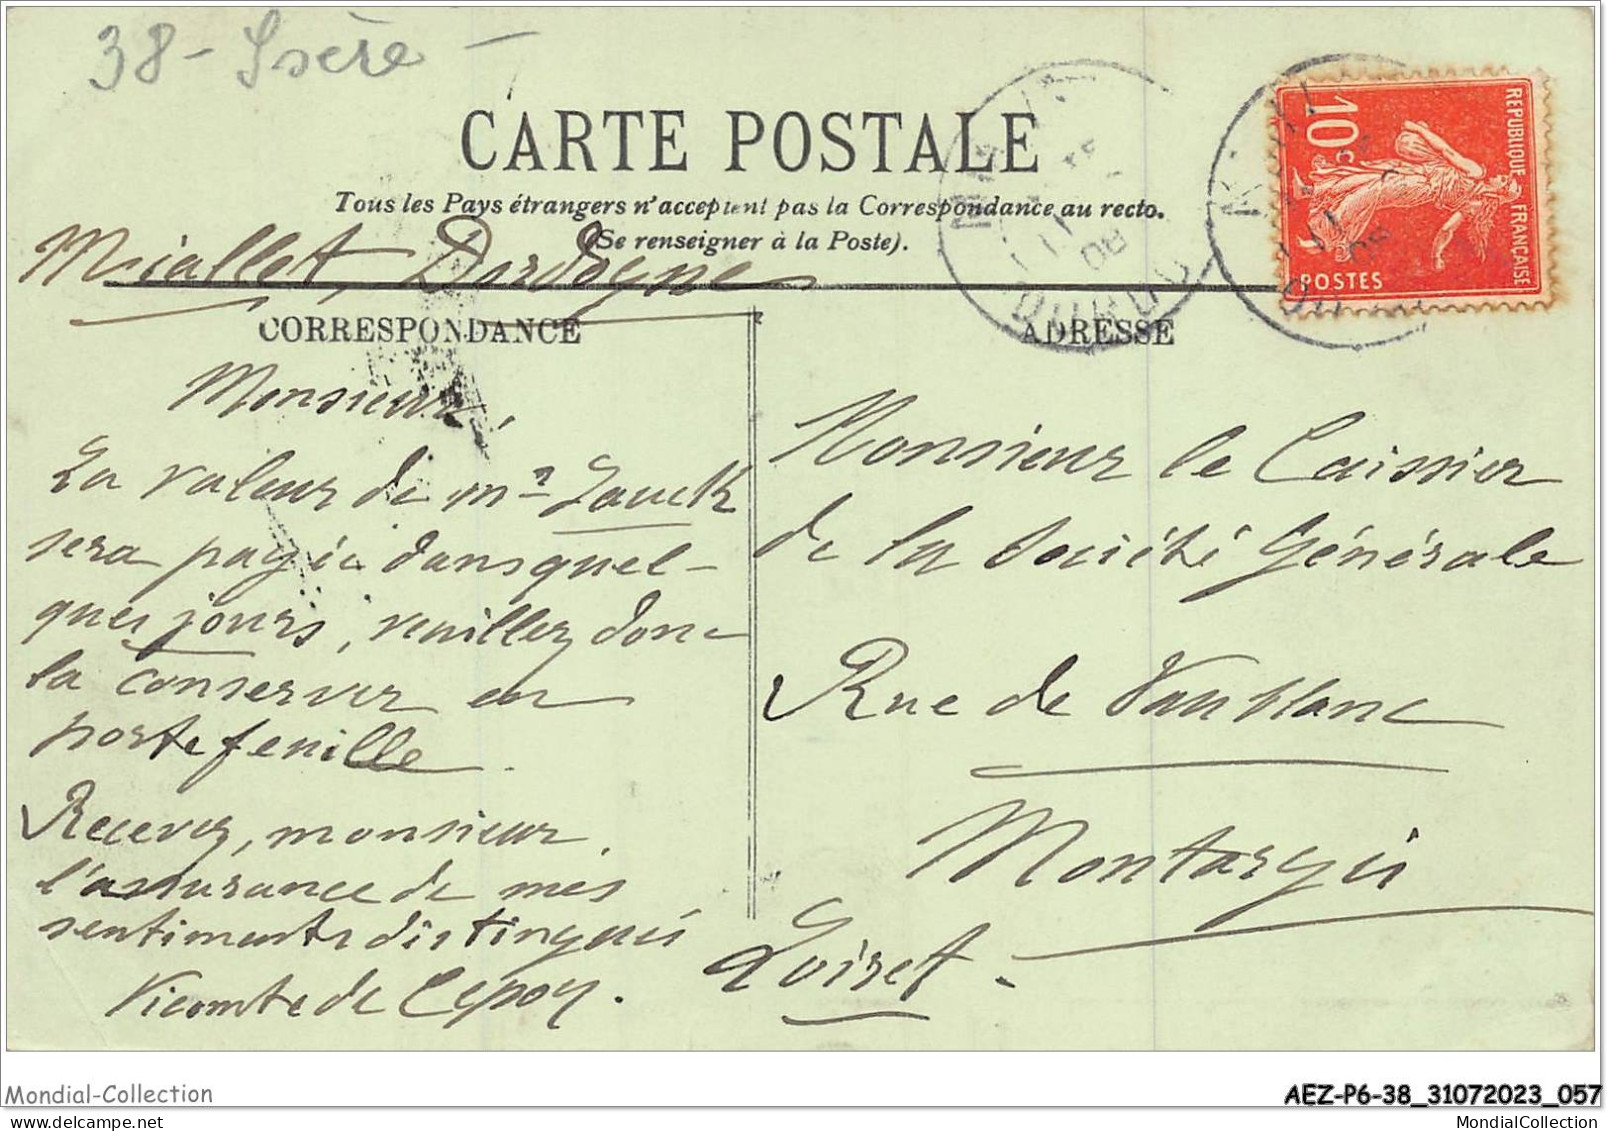 38 - Isère -
CARTE POSTALE
Tous les Pays étrangers n'acceptent pas la Correspondance au recto.
(Se renseigner à la Poste).
Miallet, Dordogne
CORRESPONDANCE
Monsieur,
La valeur de Mr Zauck
sera payée dans quel-
ques jours, veuillez donc
la conserver en
portefeuille.
Recevez, monsieur,
l'assurance de mes
sentiments distingués
Vicomte de Cepoy.
ADRESSE
Monsieur le Caissier
de la Société Générale
Rue de Vaublanc
Montargis
Loiret -
10c
REPUBLIQUE FRANÇAISE
POSTES
Mondial-Collection
AEZ-P6-38_31072023_057
MondialCollection
MondialCollection